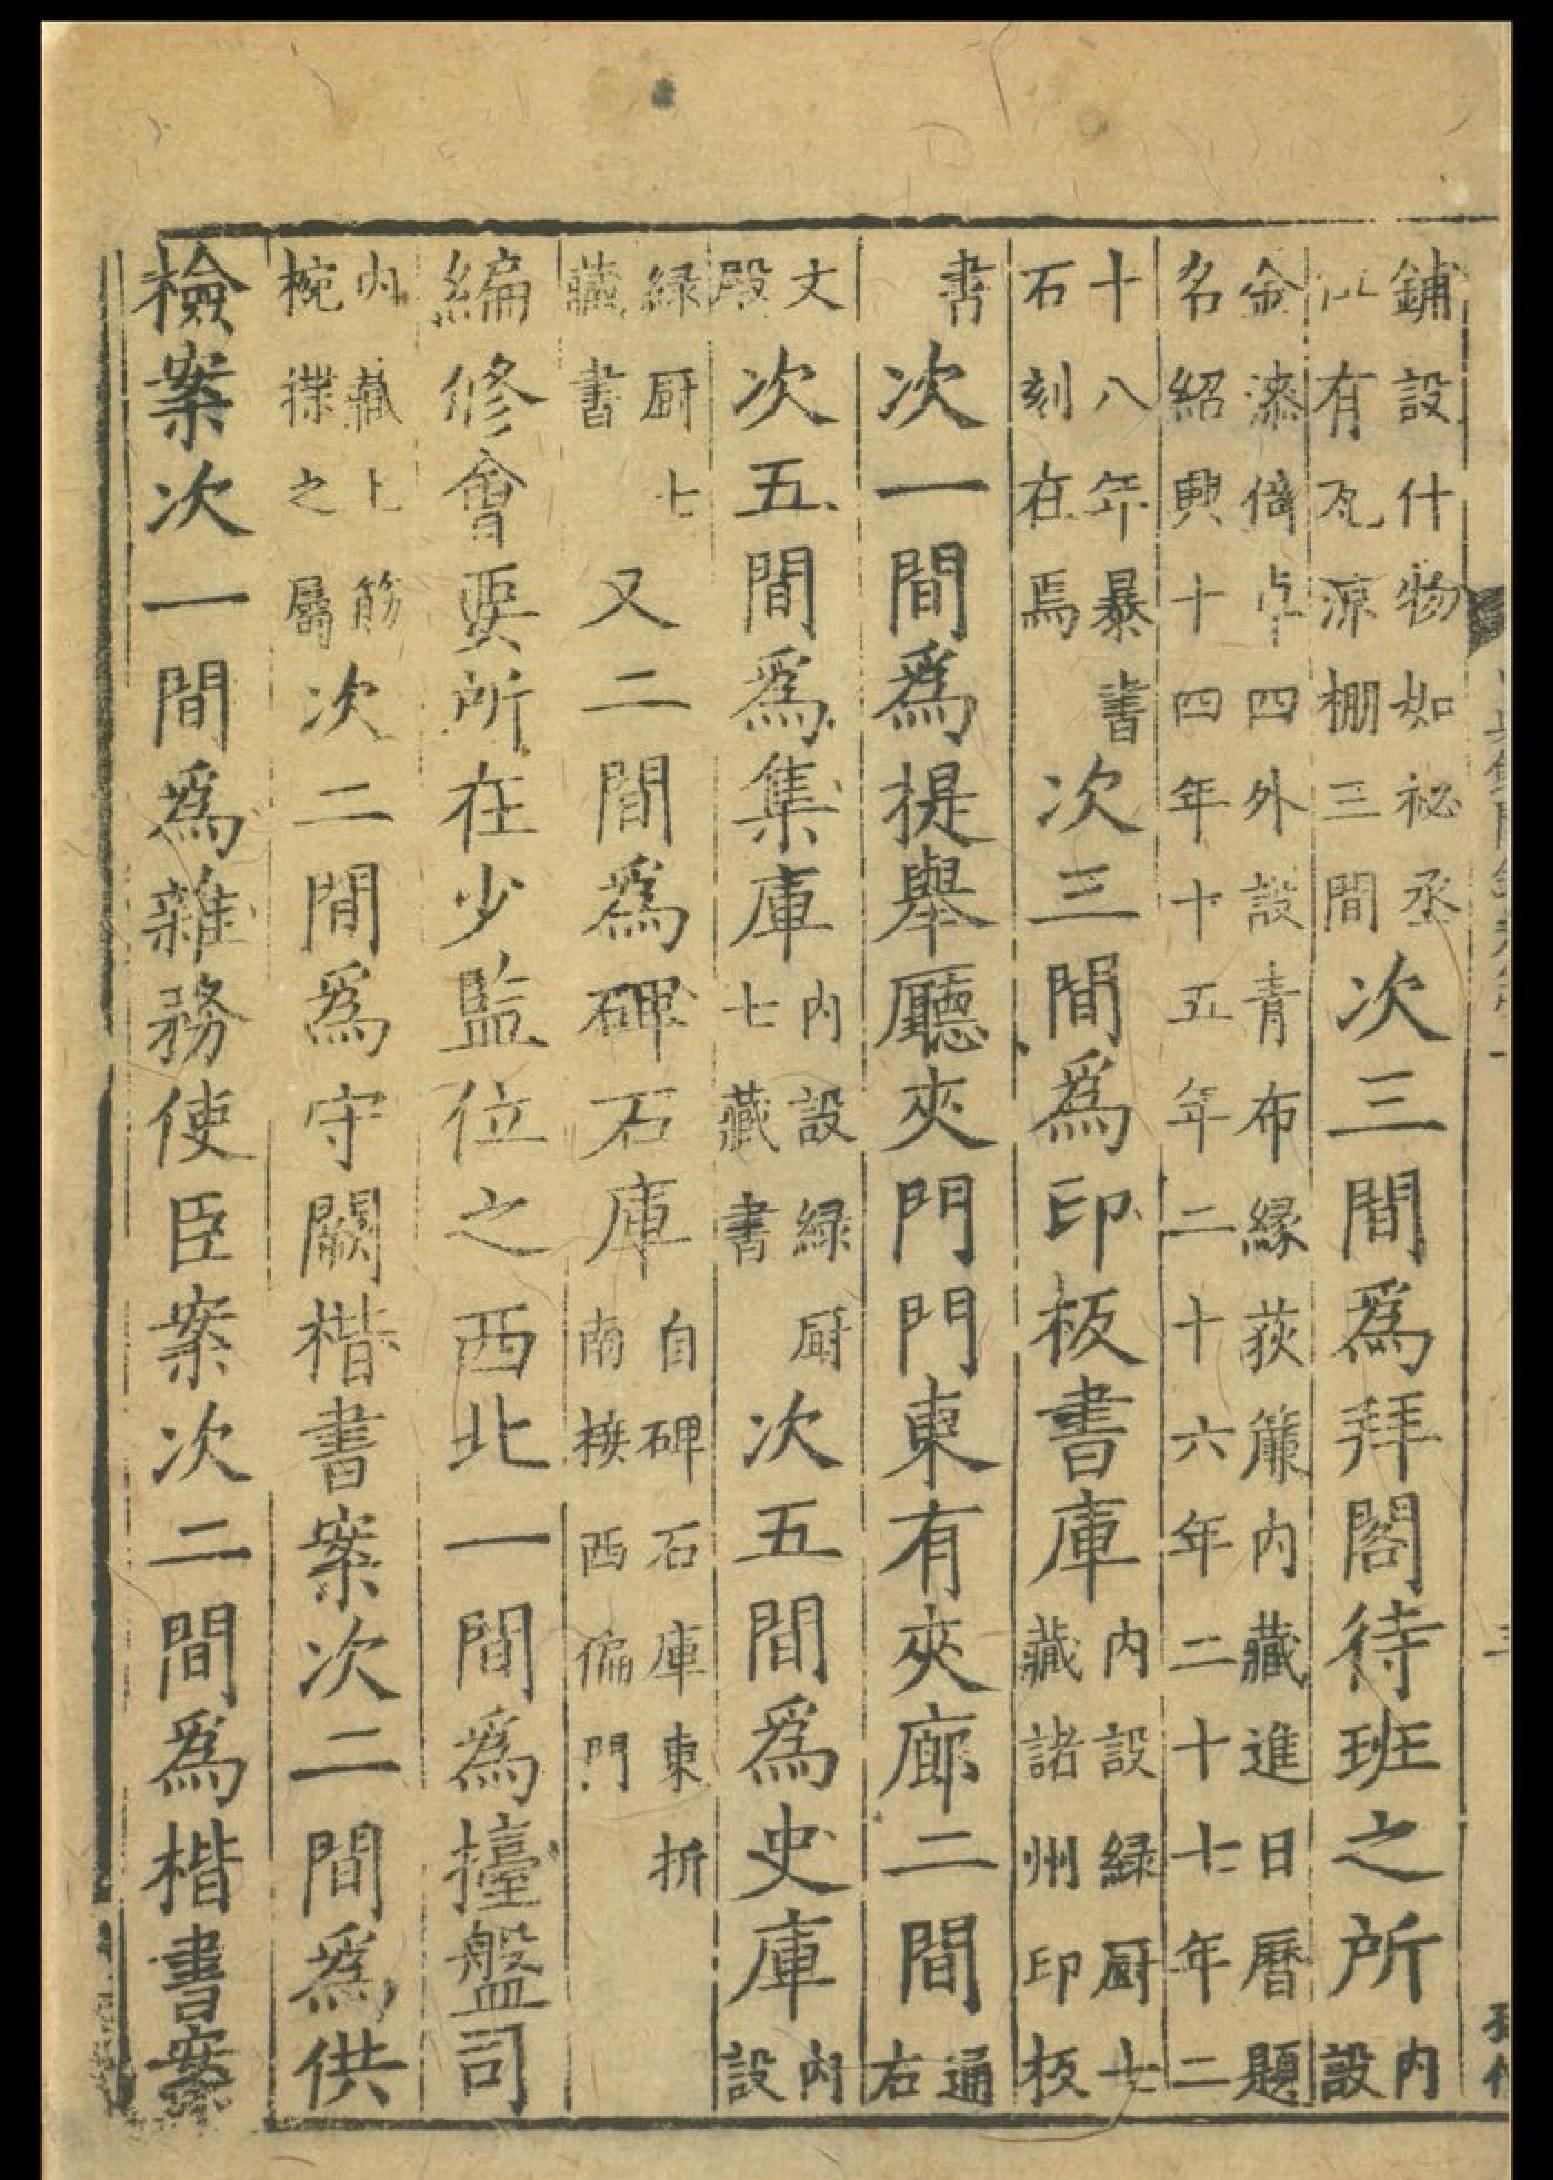 鋪設什物如祕丞
有瓦涼棚三間
次三間爲拜閣待班之所
内
設
金漆倚卓四外設青布緣荻簾内藏進日曆題
名紹興十四年十五年二十六年二十七年二
十八年暴書
石刻在焉
次三間爲印板書庫
内設緑厨七
藏諸州印板
書
次一間爲提舉廳夾門門東有夾廊二間
通
右
文
殿
次五間爲集庫
内設緑厨
七藏書
次五間爲史庫
内
設
緑厨七
藏書
又二間爲碑石庫
自碑石庫東折
南接西偏門
編修會要所在少監位之西北一間爲擡盤司
内藏匕筯
椀楪之屬
次二間爲守闕楷書案次二間爲供
檢案次一間爲雜務使臣案次二間爲楷書案